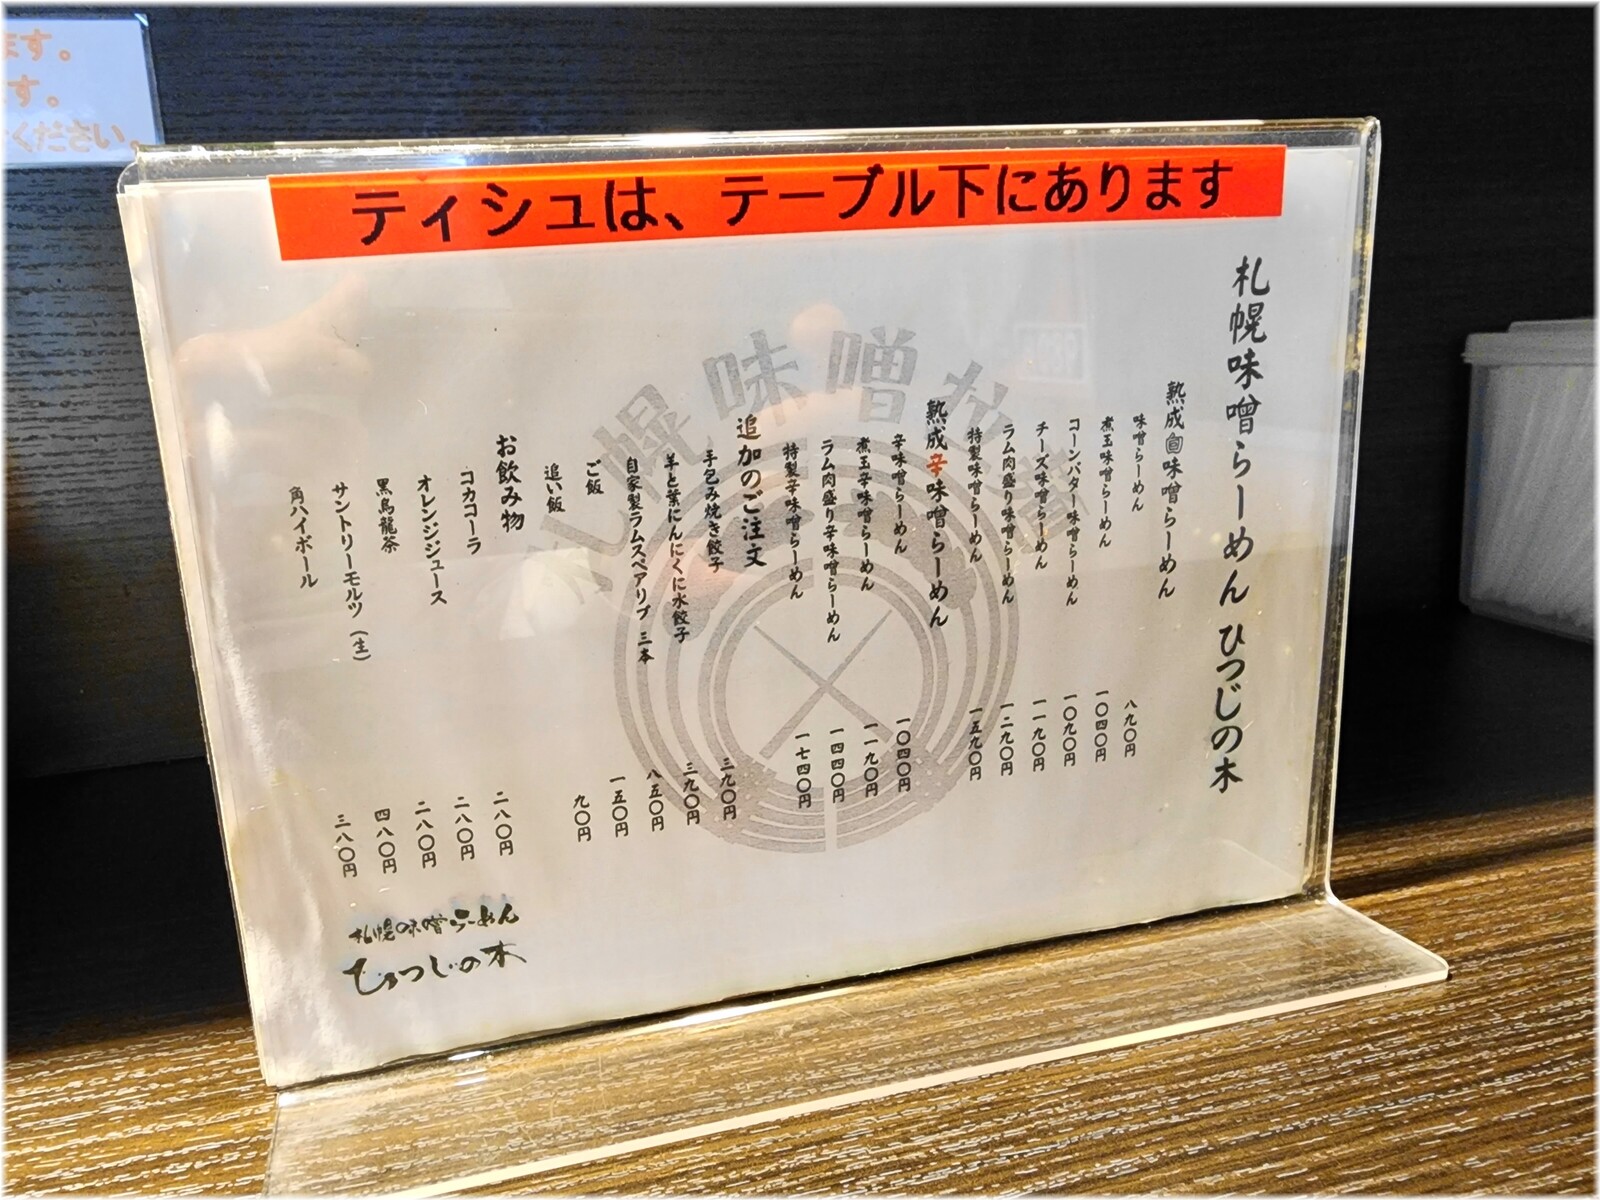 ます。
す。
ください。
ティシュは、テーブル下にあります
札幌味噌らーめん ひつじの木
熟成味噌らーめん
味噌らーめん 八九〇円
煮玉味噌らーめん 一〇四〇円
コーンバター味噌らーめん 一〇九〇円
チーズ味噌らーめん 一一九〇円
ラム肉盛り味噌らーめん 一二九〇円
特製味噌らーめん 一五九〇円
熟成辛味噌らーめん
辛味噌らーめん 一〇四〇円
煮玉辛味噌らーめん 一一九〇円
ラム肉盛り辛味噌らーめん 一四四〇円
特製辛味噌らーめん 一七四〇円
追加のご注文
手包み焼き餃子 三九〇円
羊と葉にんにくに水餃子 三九〇円
自家製ラムスペアリブ 三本 八五〇円
ご飯 一五〇円
追い飯 九〇円
お飲み物
コカコーラ 二八〇円
オレンジジュース 二八〇円
黒烏龍茶 二八〇円
サントリーモルツ(生) 四八〇円
角ハイボール 三八〇円
札幌味噌
札幌味噌らーめん
ひつじの木